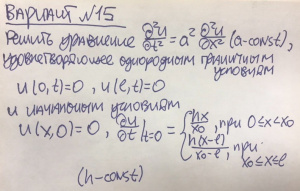 ВАРИАНТ №15
Решить уравнение ∂²u/∂t² = a² ∂²u/∂x² (a-const),
удовлетворяющее однородным граничным
условиям
u(0,t)=0, u(l,t)=0
и начальным условиям
u(x,0)=0, ∂u/∂t|t=0 = { hx/x₀, при 0≤x≤x₀
h(x-l)/(x₀-l), при x₀≤x≤l
(h-const)